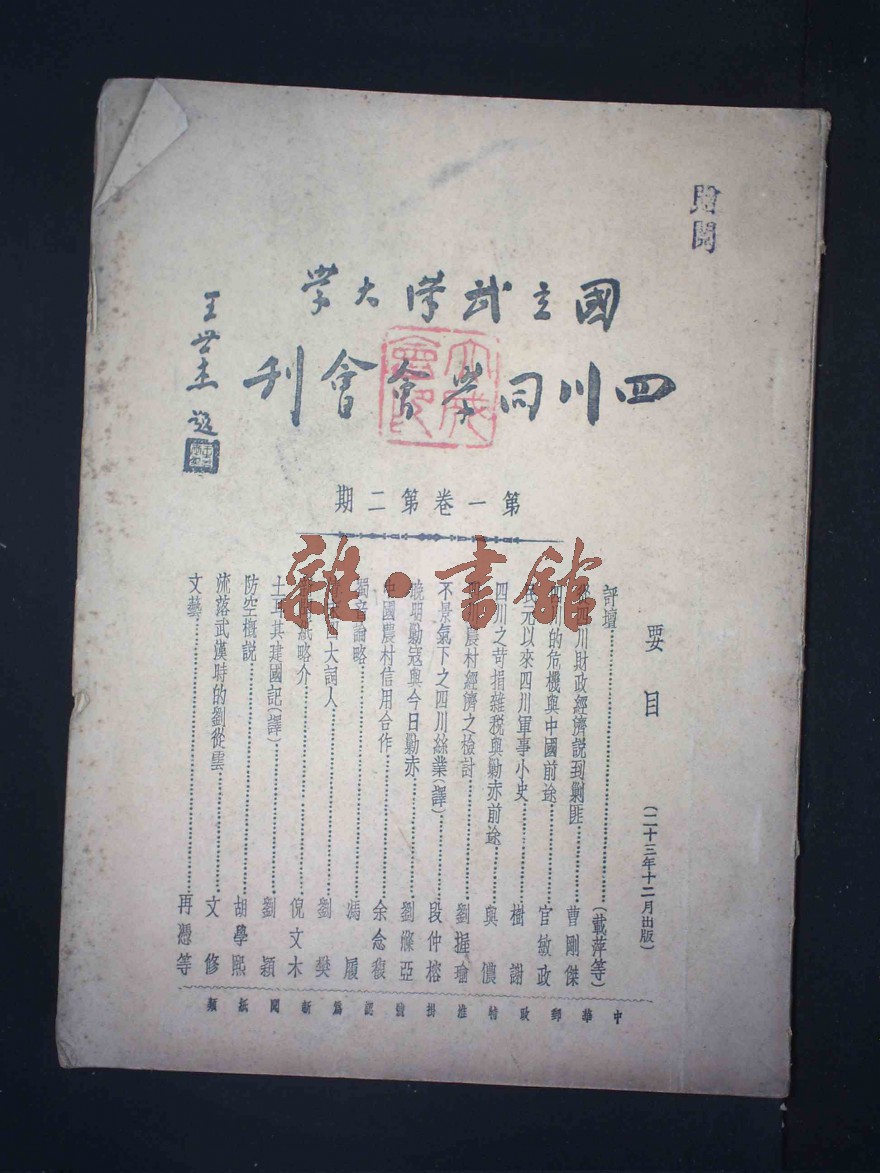 贈閱
國立武漢大學
四川同學會會刊
王世杰題
第一卷第二期
要目
(二十三年十二月出版)
評壇(戴萍等)
四川財政經濟説到剿匪 曹剛傑
川的危機與中國前途 官敏政
元以來四川軍事小史 樹謝
四川之苛捐雜稅與勦赤前途 與儂
農村經濟之檢討 劉握瑜
不景氣下之四川絲業(譯) 段仲榕
晚明勦寇與今日勦赤 劉滌亞
中國農村信用合作 余念馥
獨音論略 馮履
大詞人 劉樊
紙略介 倪文木
土耳其建國記(譯) 劉穎
防空概説 胡學熙
流落武漢時的劉從雲 文修
文藝 再憑等
中華郵政特准掛號認爲新聞紙類
雜·書館